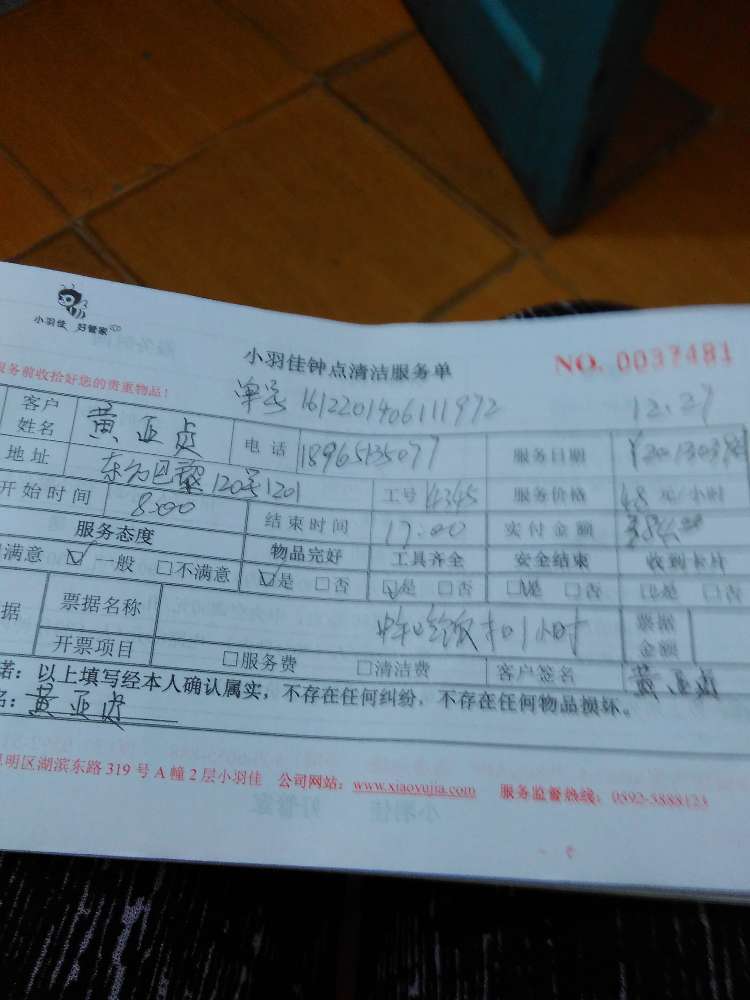 小羽佳 好管家
小羽佳钟点清洁服务单 NO. 0037481
服务前收拾好您的贵重物品！
单号 1612201406111972 12.27
客户姓名 黄亚贞 电话 18965135077 服务日期
地址 120号1201 工号 4345 服务价格 48 元/小时
开始时间 8:00 结束时间 17:00 实付金额 384
服务态度 物品完好 工具齐全 安全结束 收到卡片
满意 ☑一般 □不满意 ☑是 □否 ☑是 □否 ☑是 □否 ☑是 □否
据 票据名称 扣1小时 票据金额
开票项目 □服务费 □清洁费 客户签名 黄亚贞
诺：以上填写经本人确认属实，不存在任何纠纷，不存在任何物品损坏。
名：黄亚贞
明区湖滨东路 319 号 A 幢 2 层小羽佳 公司网站：www.xiaoyujia.com 服务监督热线：0592-5888123